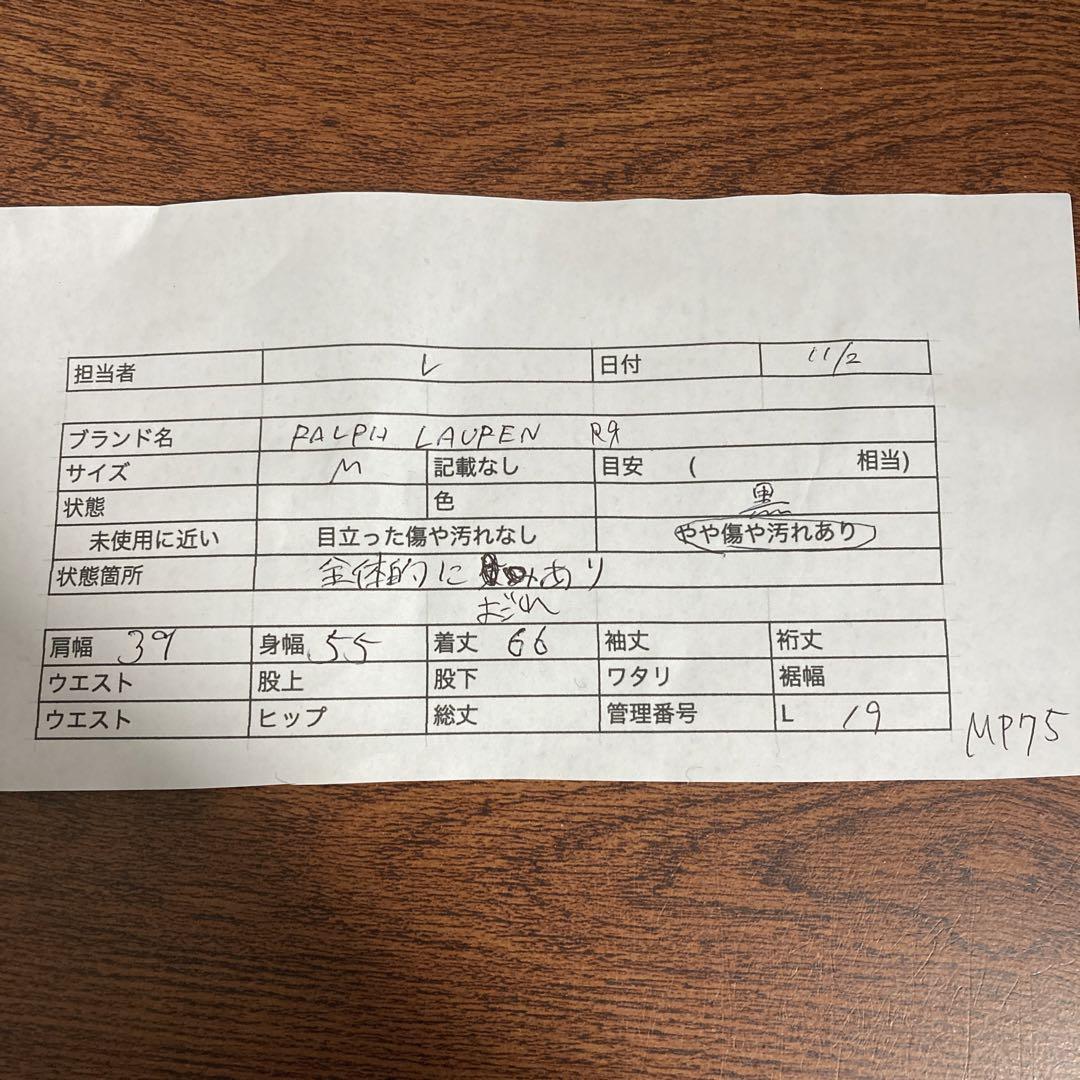 担当者 L 日付 11/2
ブランド名 RALPH LAUREN
サイズ M 記載なし 目安 ( 相当)
状態 色 黒
未使用に近い 目立った傷や汚れなし やや傷や汚れあり
状態箇所 全体的に あり
よごれ
肩幅 39 身幅 55 着丈 66 袖丈 裄丈
ウエスト 股上 股下 ワタリ 裾幅
ウエスト ヒップ 総丈 管理番号 L 19
MP75